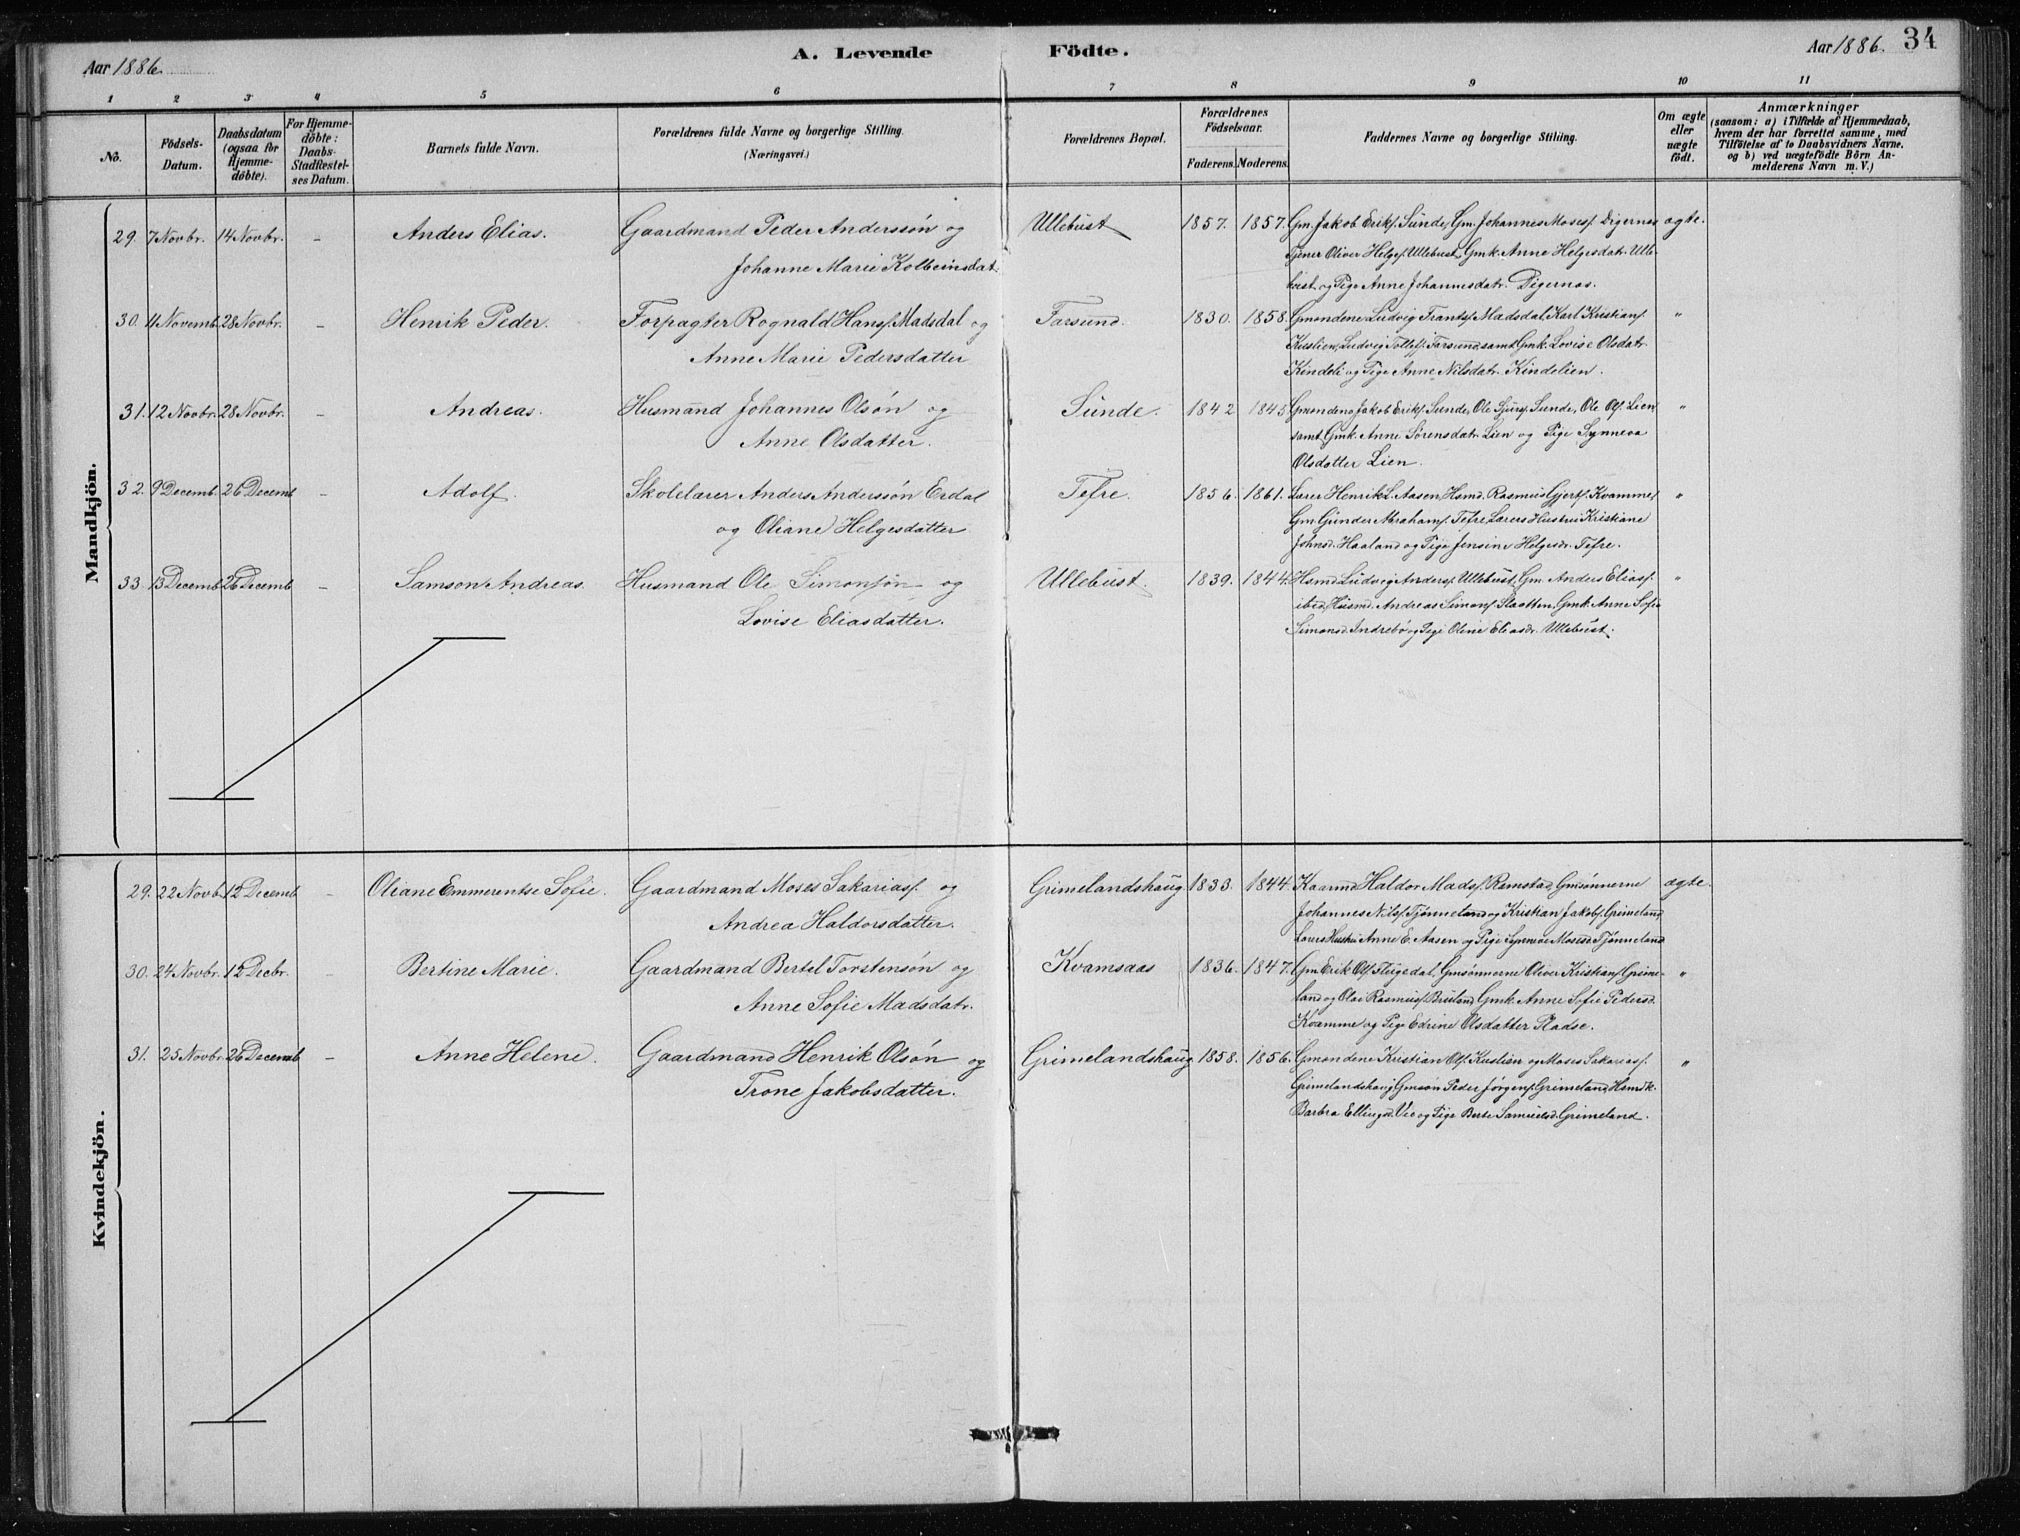 Aar 1886. A. Levende Födte. Aar 1886. 34
1 2 3 4 5 6 7 8 9 10 11
No. Födsels-Datum. Daabsdatum (ogsaa for Hjemmedöbte). For Hjemmedöbte: Daabs-Stadfæstelses Datum. Barnets fulde Navn. Forældrenes fulde Navne og borgerlige Stilling. (Næringsvei.) Forældrenes Bopæl. Forældrenes Födselsaar. Faderens. Moderens. Faddernes Navne og borgerlige Stilling. Om ægte eller uægte födt. Anmærkninger (saasom: a) i Tilfælde af Hjemmedaab, hvem der har forrettet samme, med Tilföielse af to Daabsvidners Navne, og b) ved uægtefödte Börn Anmelderens Navn m. V.)
Mandkjön.
29. 7 Novbr. 14 Novbr. - Anders Elias. Gaardmand Peder Anderssön og Ullebust 1857. 1857. Gm. Jakob Eriks. Sunde, Gm. Johannes Moses. Digernes ægte.
Johanne Marie Kolbeinsdat. Tjener Oliver Helges. Ullebust, Gmk. Anne Helgesdatr. Ulle-
bust og Pige Anne Johannesdatr. Digernes.
30. 4 Novemb. 28 Novbr. - Henrik Peder. Forpagter Rognald Hans. Madsdal og Farsund. 1830. 1858. Gmændene Ludvig Frants. Madsdal, Karl Kristians.
Anne Marie Pedersdatter Kuslien, Ludvig Tollefs. Farsund, samt Gmk. Lovise Olsdatr.
Kindeli og Pige Anne Nilsdatr. Kindelien.
31. 12 Novbr. 28 Novbr. - Andreas. Husmand Johannes Olsön og Sunde. 1842 1845. Gmændene Jakob Eriks. Sunde, Ole Sjurs. Sunde, Ole Ols. Lien,
Anne Olsdatter. samt Gmk. Anne Sörensdatr. Lien og Pige Synneva
Olsdatter Lien.
32. 9 Decemb. 26 Decemb - Adolf. Skolelærer Anders Anderssön Erdal Tefre. 1856. 1861. Lærer Henrik L. Aasen, Hsmd. Rasmus Gjerts. Kvamme,
og Oliane Helgesdatter Gm. Gunder Abrahams. Tefre, Lærers Hustru Kristiane
Johnsd. Haaland og Pige Jensine Helgesdr. Tefre.
33. 13 Decemb 26 Decemb - Samson Andreas. Husmand Ole Simonsön og Ullebust. 1839. 1844. Hsmd. Ludvig Anders. Ullebust, Gm. Anders Elias.
Lovise Eliasdatter. ibid, Husmd. Andreas Simons. Slaatten, Gmk. Anne Sofie
Simonsd. Andrebö og Pige Oline Eliasdr. Ullebust.
Kvindekjön.
29. 22 Novbr. 12 Decemb - Oliane Emmerentse Sofie. Gaardmand Moses Sakarias. og Grimelandshaug 1833. 1844. Kaarmd. Haldor Mads. Ramstad, Gmsönnerne ægte.
Andrea Haldorsdatter. Johannes Nils. Tjönneland og Kristian Jakobs. Grimeland,
Lærers Hustru Anne E. Aasen og Pige Synneve Mosesd. Tjönneland
30. 24 Novbr. 12 Decbr. - Bertine Marie. Gaardmand Bertel Torstensön og Kvamsaas 1836. 1847. Gm. Erik Ols. Steigedal, Gmsönnerne Oliver Kristians. Grime-
Anne Sofie Madsdatr. land og Olai Rasmus. Bruland, Gmk. Anne Sofie Pedersd.
Kvamme og Pige Edrine Olsdatter Sladse.
31. 25 Novbr. 26 Decemb - Anne Helene. Gaardmand Henrik Olsön og Grimelandshaug 1858. 1856. Gmændene Kristian Ols. Kuslien og Moses Sakarias.
Trone Jakobsdatter. Grimelandshaug Gmsön Peder Jörgens. Grimeland, Hsmdk.
Barbra Ellingsd. Vie og Pige Berte Samuelsd. Grimeland.